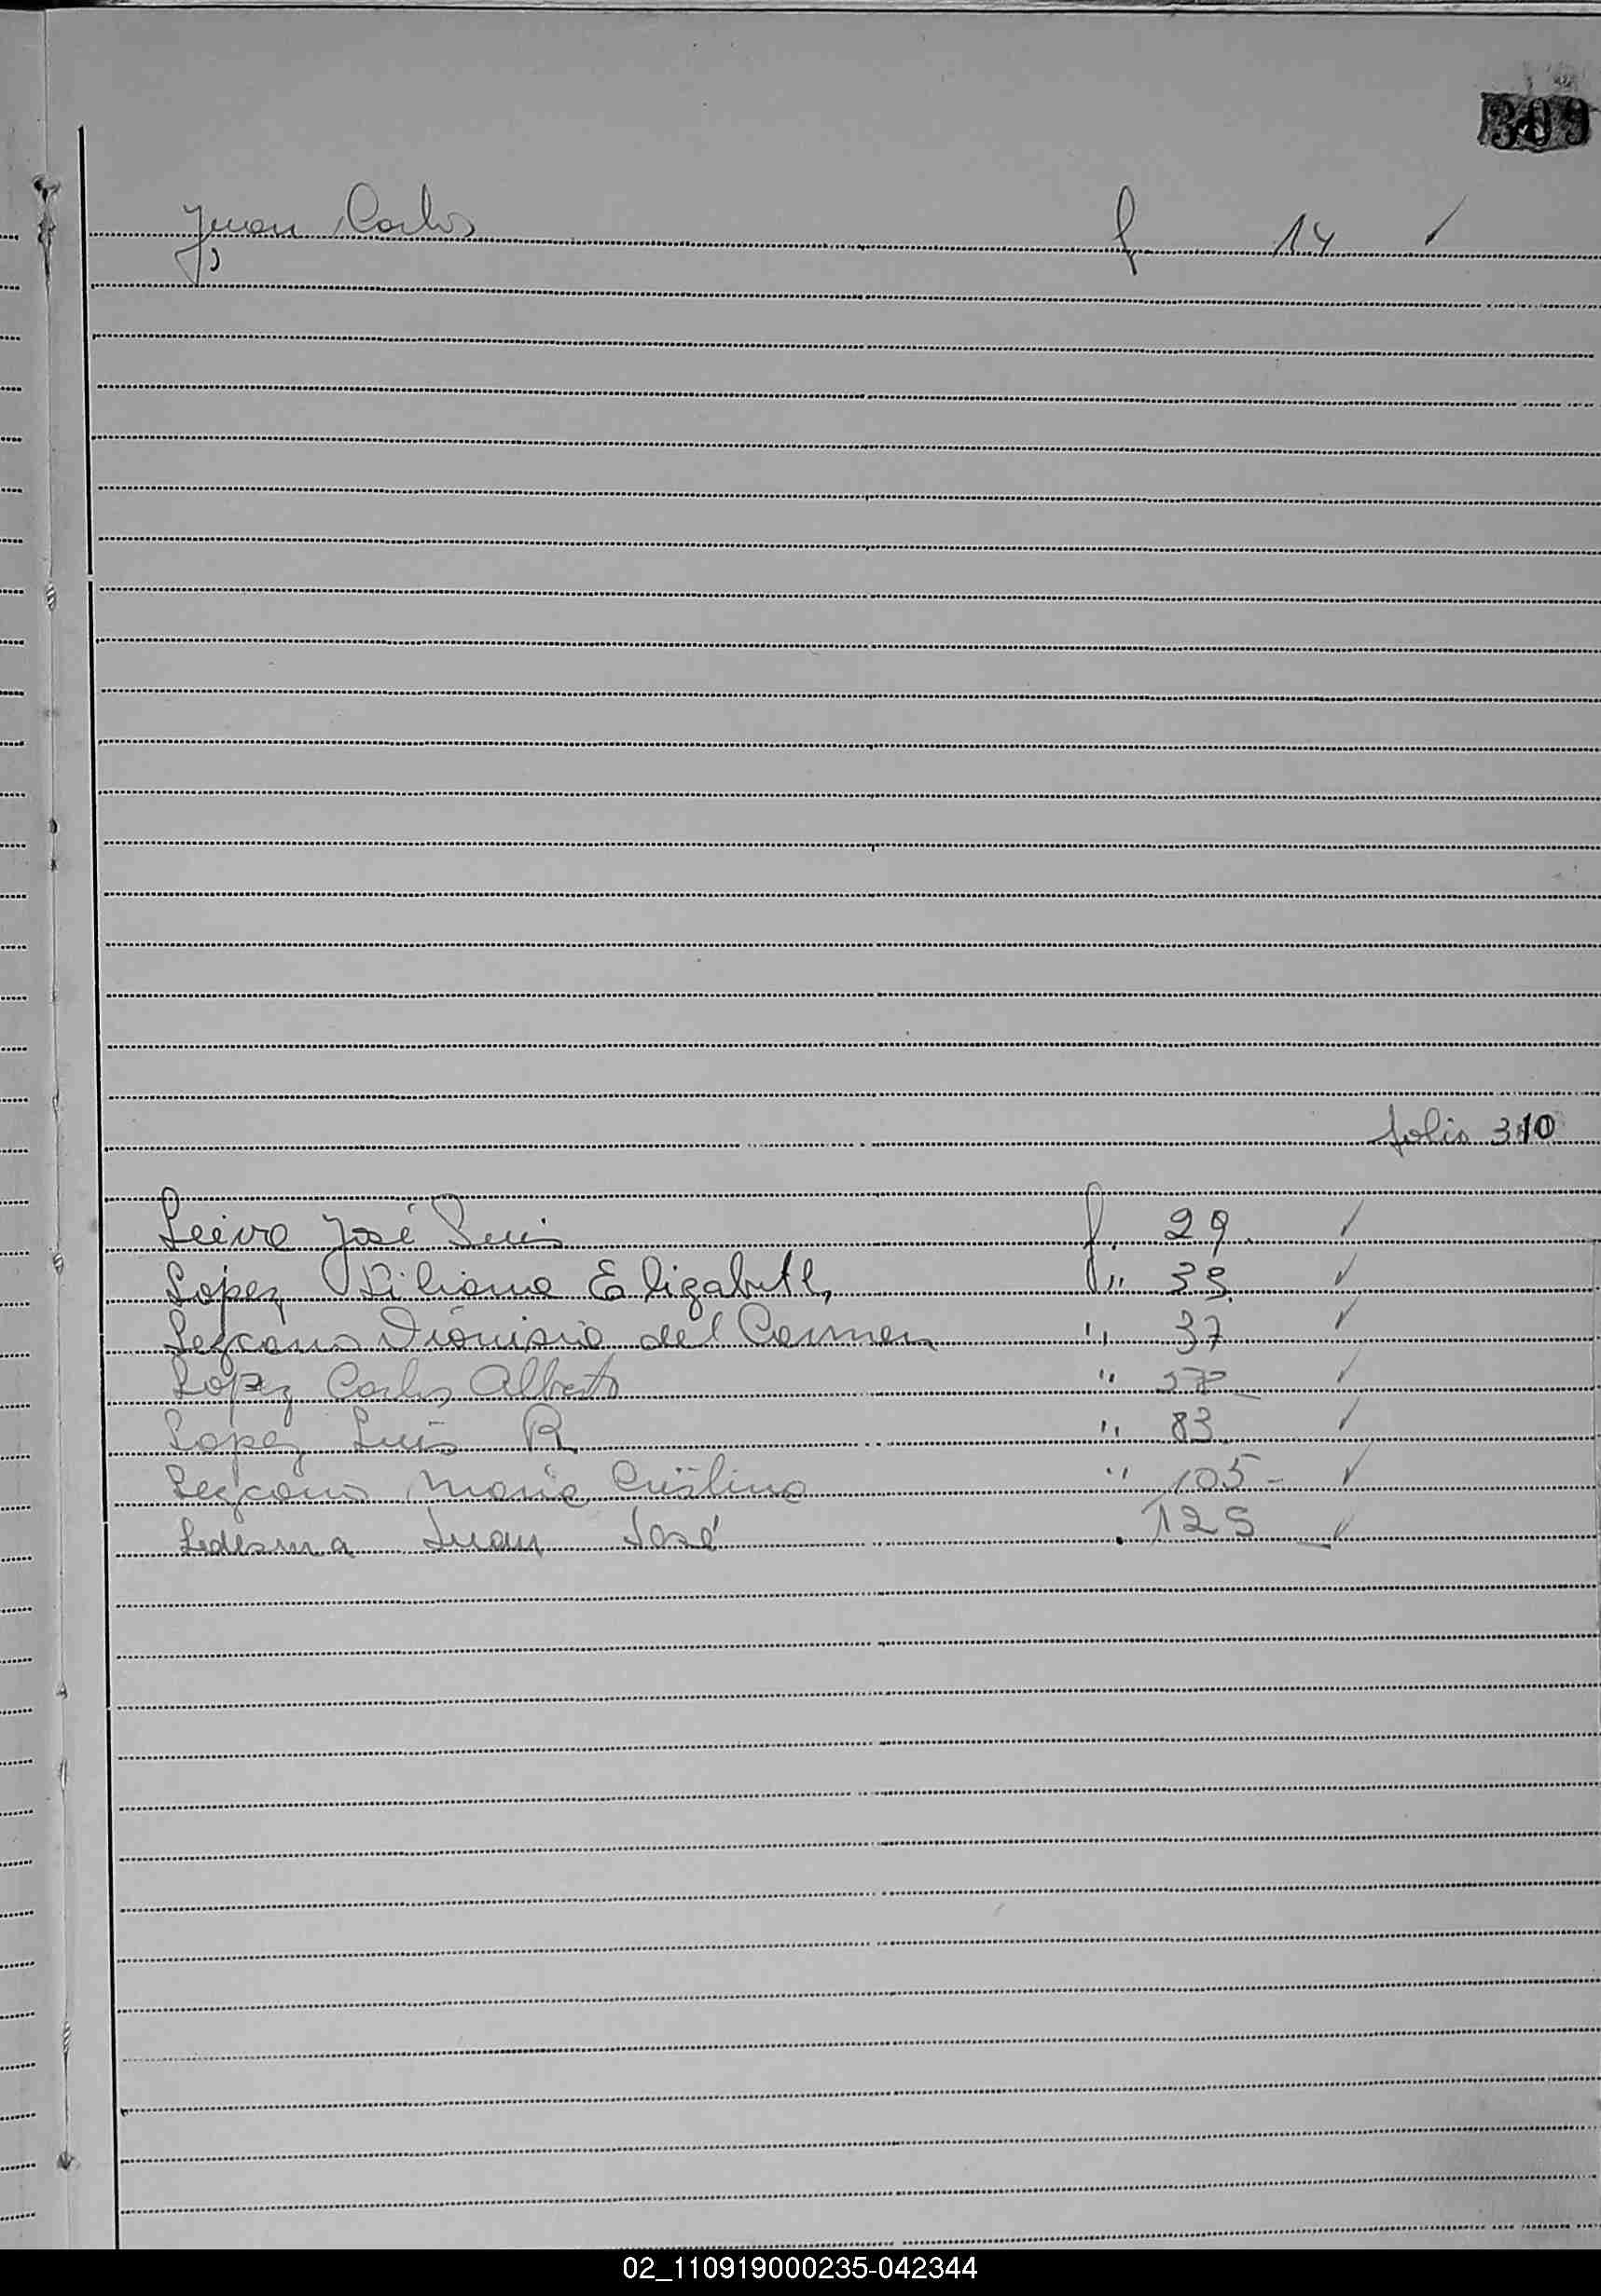 309
Juan Carlos f 14 ✓
folio 310
Leiva José Luis f. 29. ✓
Lopez Liliana Elizabeth, " 33. ✓
Lezcano Dionisia del Carmen " 37 ✓
Lopez Carlos Alberto " ✓
Lopez Luis R " 83 ✓
Lezcano Maria Cristina " 105- ✓
Ledesma Juan José . 125 ✓
02_110919000235-042344